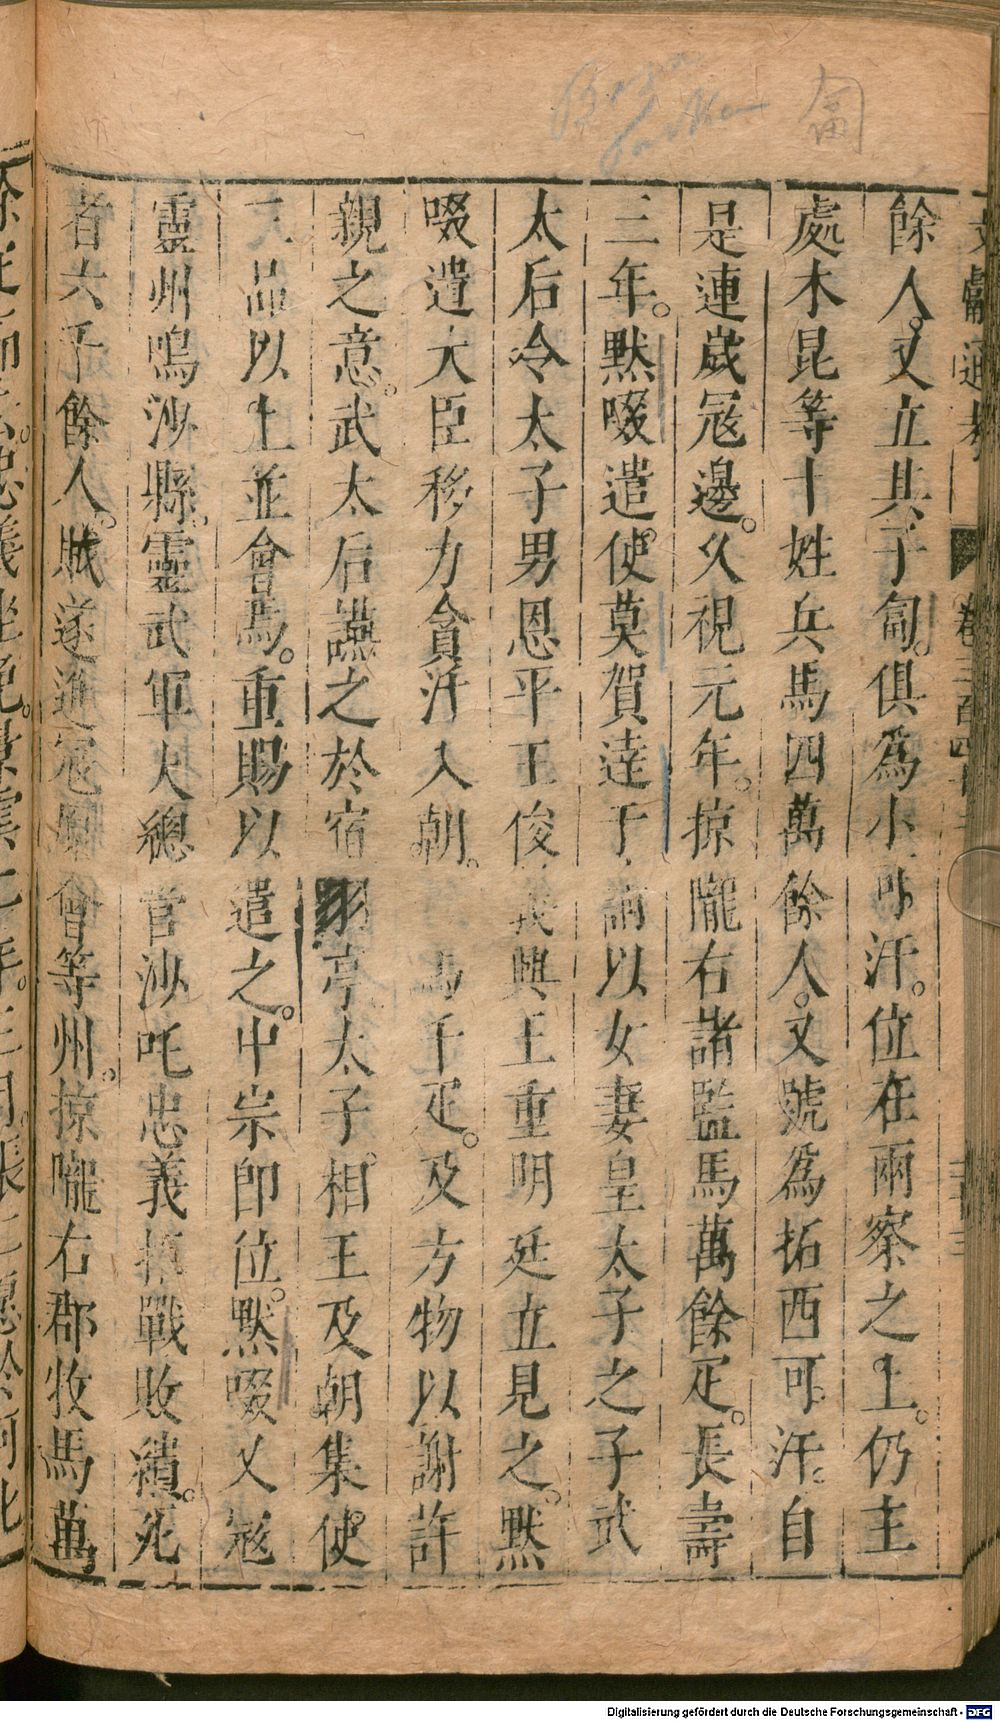 匐
餘人。又立其子匐。俱爲小可汗。位在兩察之上。仍主
處木昆等十姓兵馬四萬餘人。又號爲拓西可汗。自
是連歲寇邊。久視元年。掠隴右諸監馬萬餘疋。長壽
三年。默啜遣使莫賀達干請以女妻皇太子之子武
太后令太子男恩平王俊義興王重明廷立見之。默
啜遣大臣移力貪汗入朝。馬千疋。及方物以謝許
親之意。武太后讌之於宿羽亭太子。相王及朝集使
三品以上並會焉。重賜以遣之。中宗即位。默啜又寇
靈州鳴沙縣。靈武軍大總管沙吒忠義拒戰敗績。死
者六千餘人。賊遂進寇原會等州。掠隴右郡牧馬萬
文獻通考 卷三百四十三
Digitalisierung gefördert durch die Deutsche Forschungsgemeinschaft - DFG